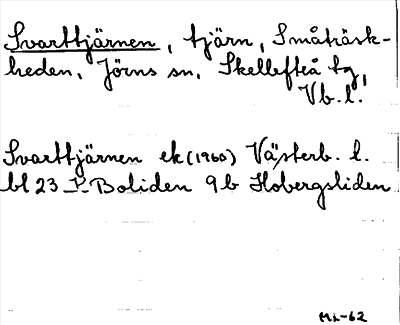 Svarttjärnen, tjärn, Småträsk-
heden, Jörns sn, Skellefteå tg,
Vb.l.
Svarttjärnen ek (1960) Västerb. l.
bl 23 Boliden 9b Hobergsliden
Mi-62